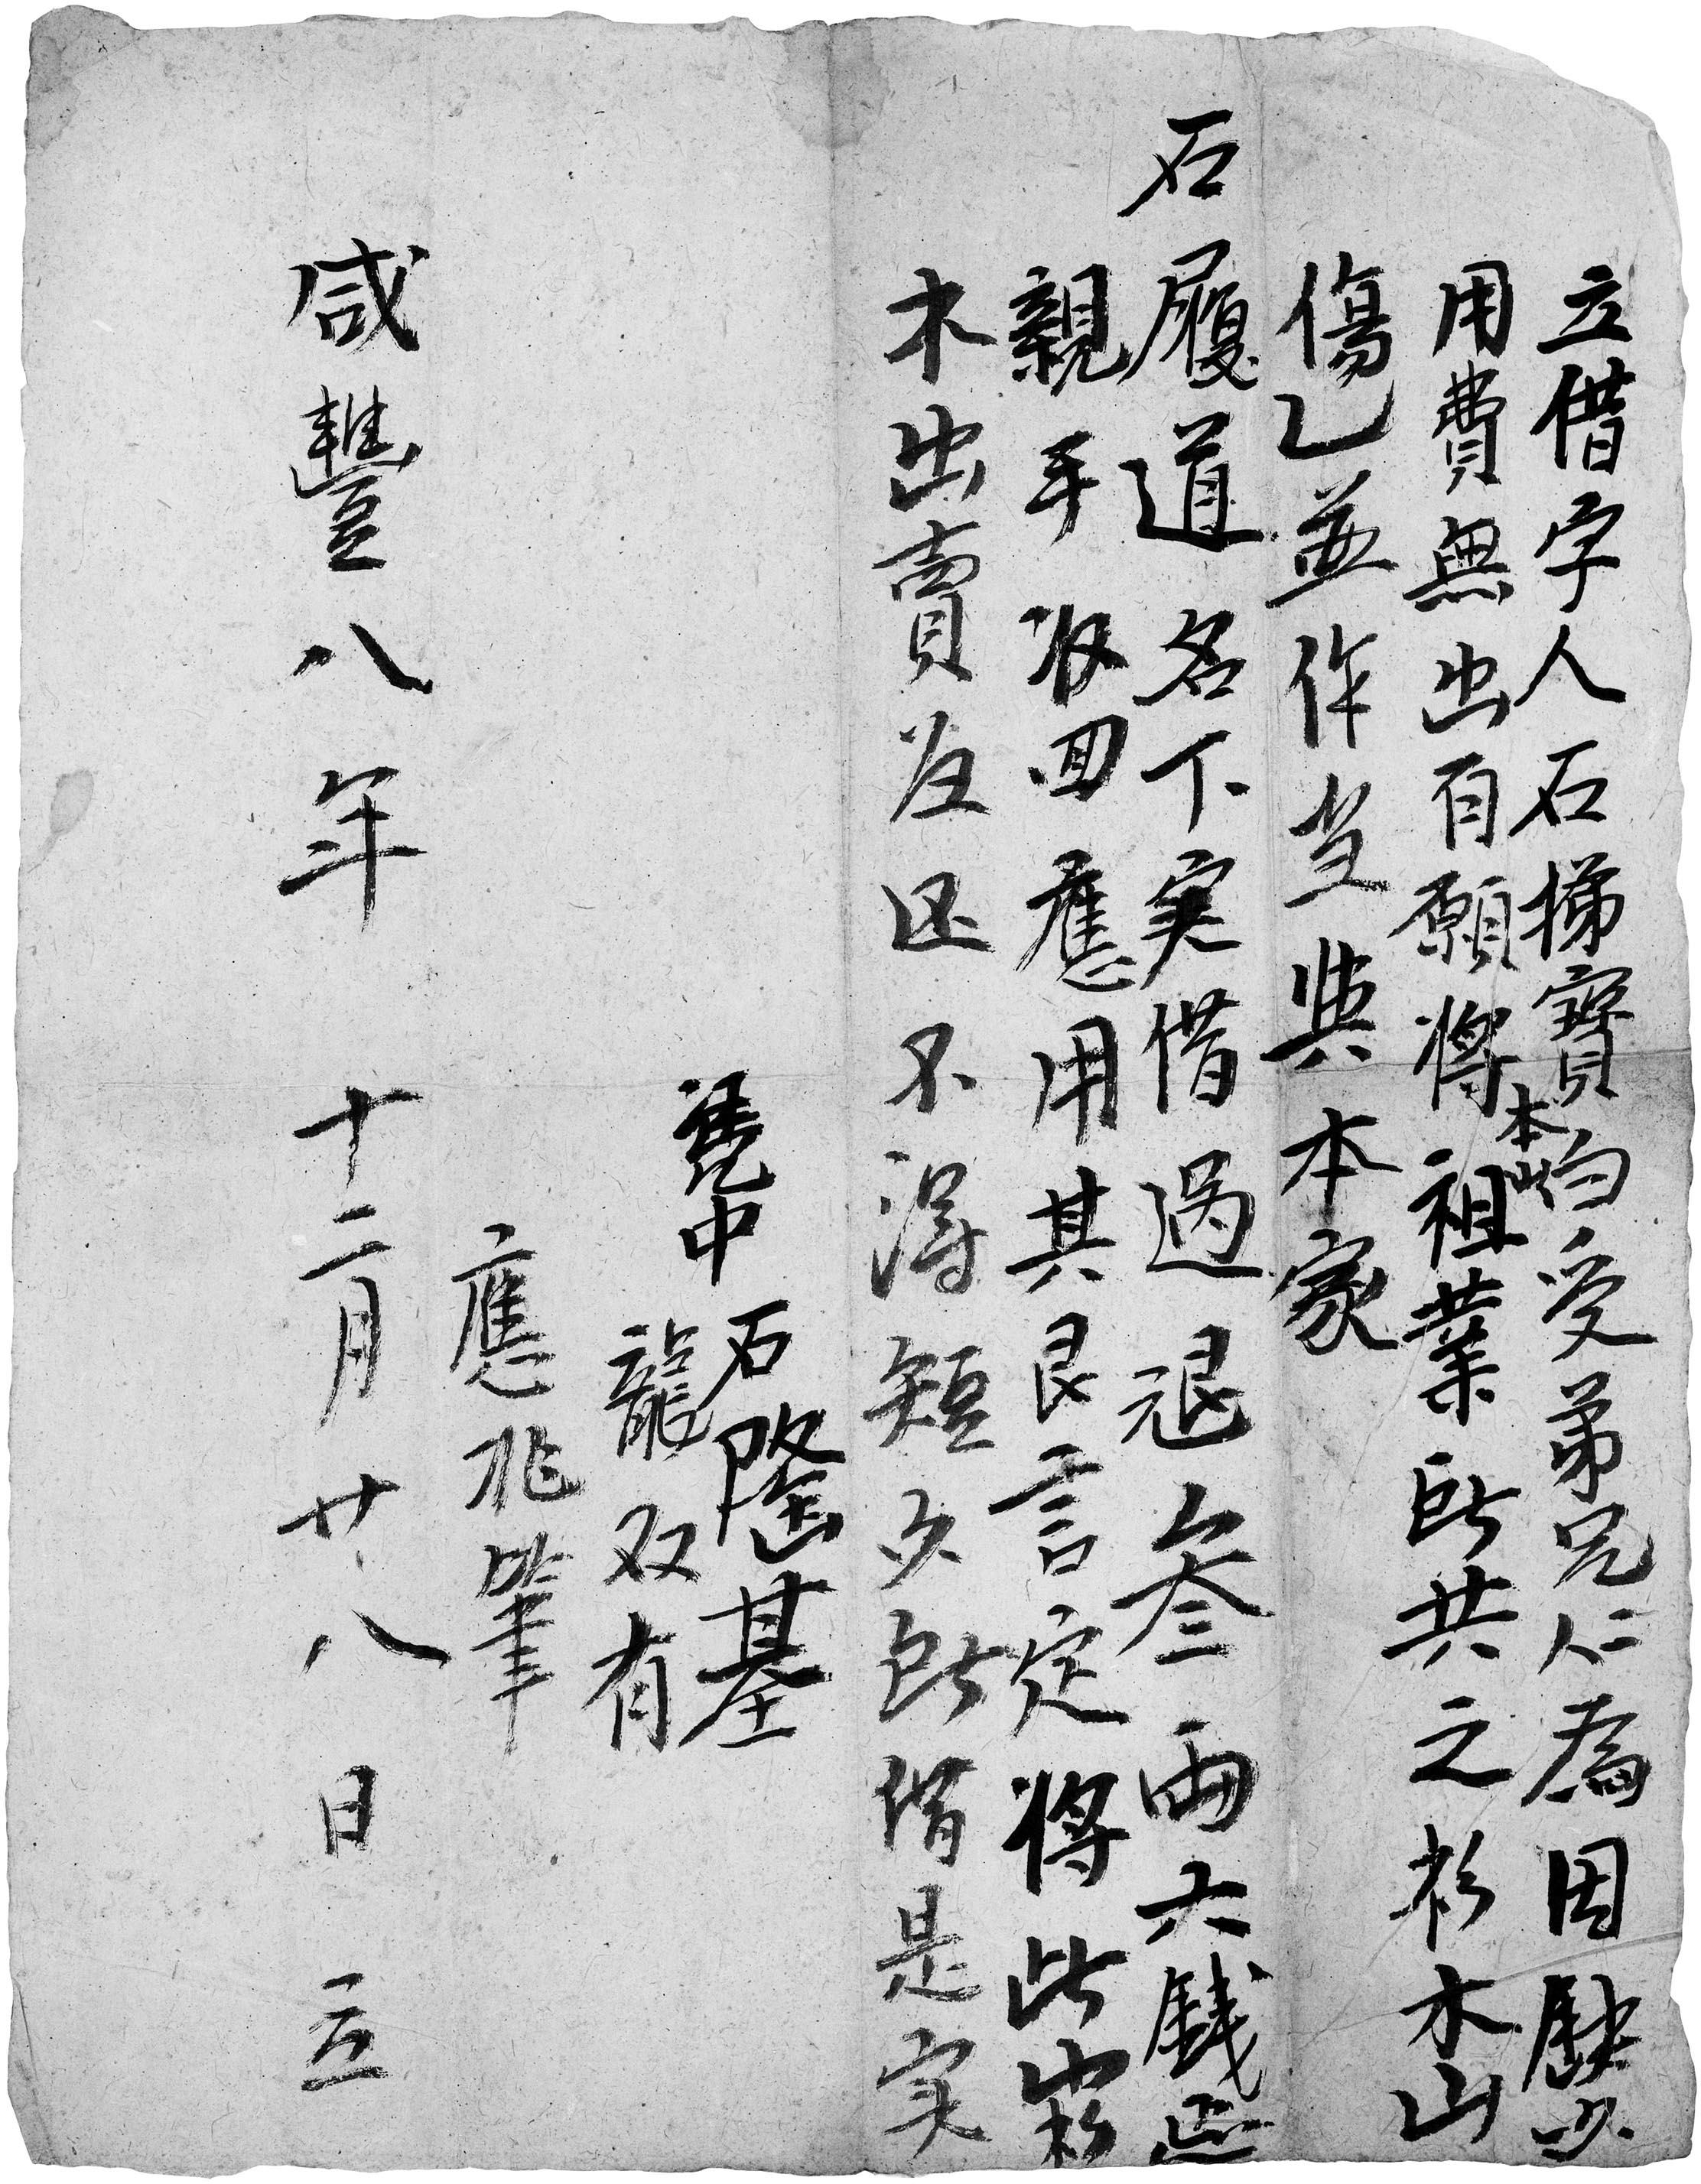 立借字人石梯寳均受弟兄仁為因缺少
用費無出自願將本山祖業所共之杉木山
傷乙並作当與本家
石履道名下実借過退叁両六錢正
親手收回應用其艮言定將此山杉
木出賣為还不得短少所借是实
凭中石隆基
龍双有
應兆筆
咸豐八年十二月廿八日立